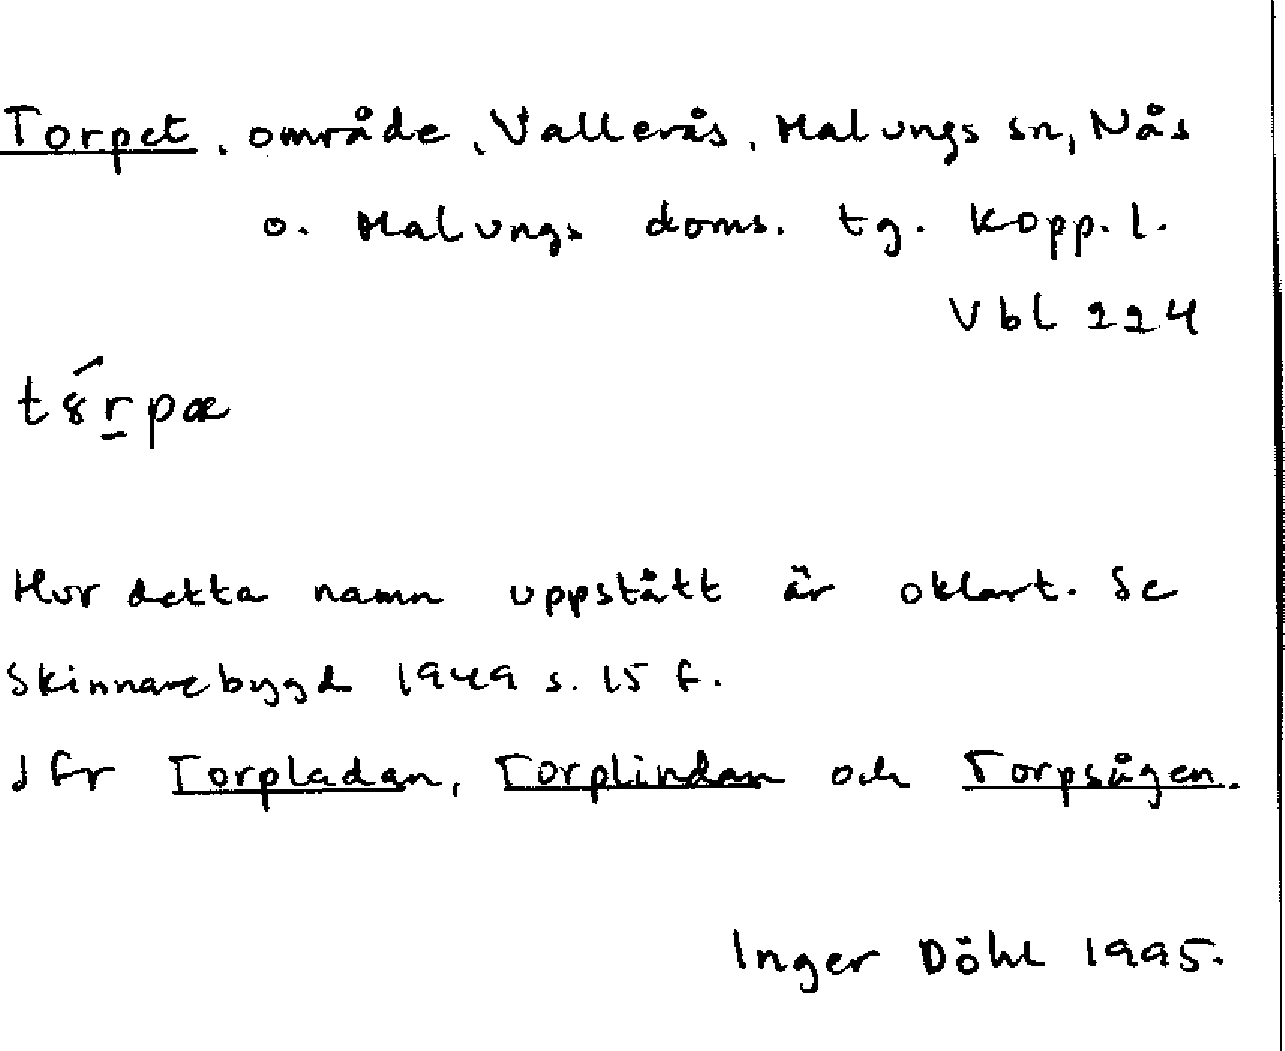 Torpet, område, Vallerås, Malungs sn, Nås
o. Malungs doms. tg. Kopp. l.
Vbl 224
Hur detta namn uppstått är oklart. Se
Skinnarebygd 1949 s. 15 f.
Jfr Torpladan, Torplindan och Torpsågen.
Inger Döhl 1995.